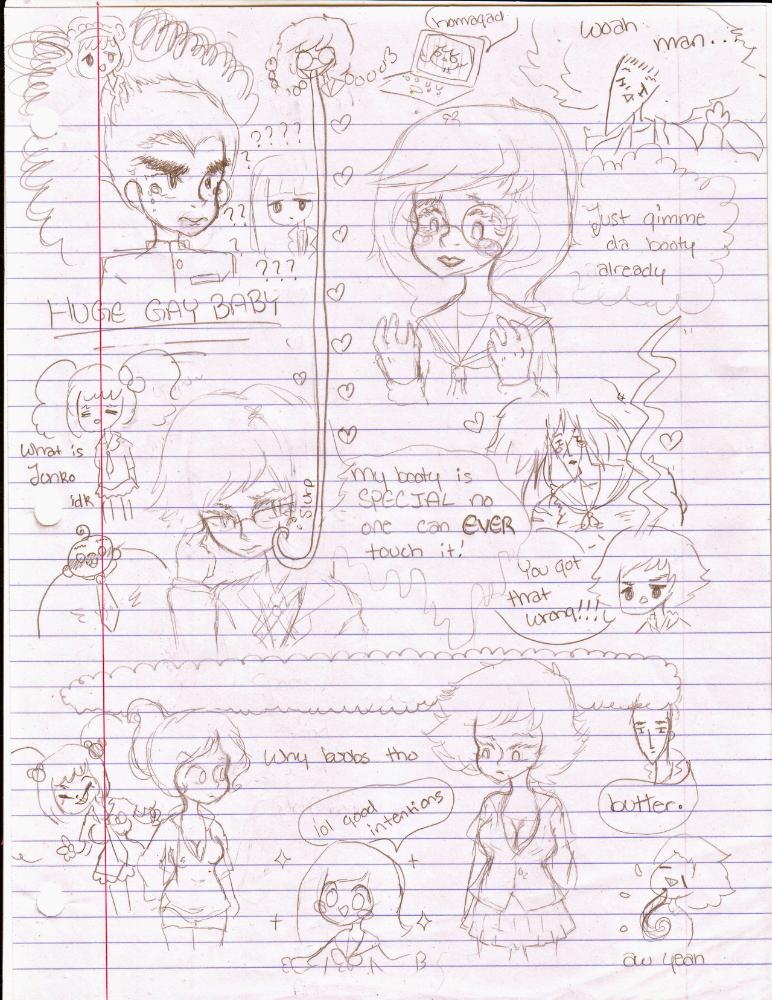 homagad
woah
man..
????
?
??
?
???
Just gimme
da booty
already
HUGE GAY BABY
What is
Jonko
idk
slurp
My booty is
SPECIAL no
one can EVER
touch it!
You got
that
wrong!!!
Why boobs tho
lol good
intentions
butter.
aw yeah